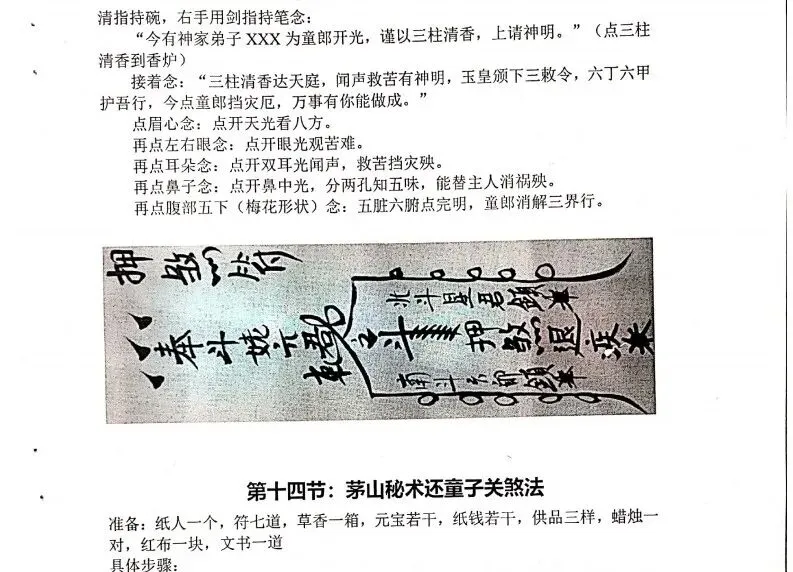 清指持碗，右手用剑指持笔念：
“今有神家弟子 XXX 为童郎开光，谨以三柱清香，上请神明。”（点三柱
清香到香炉）
接着念：“三柱清香达天庭，闻声救苦有神明，玉皇颁下三敕令，六丁六甲
护吾行，今点童郎挡灾厄，万事有你能做成。”
点眉心念：点开天光看八方。
再点左右眼念：点开眼光观苦难。
再点耳朵念：点开双耳光闻声，救苦挡灾殃。
再点鼻子念：点开鼻中光，分两孔知五味，能替主人消祸殃。
再点腹部五下（梅花形状）念：五脏六腑点完明，童郎消解三界行。
押煞符
北斗星君
奉斗姥元君
斗押煞退
南斗
第十四节：茅山秘术还童子关煞法
准备：纸人一个，符七道，草香一箱，元宝若干，纸钱若干，供品三样，蜡烛一
对，红布一块，文书一道
具体步骤：